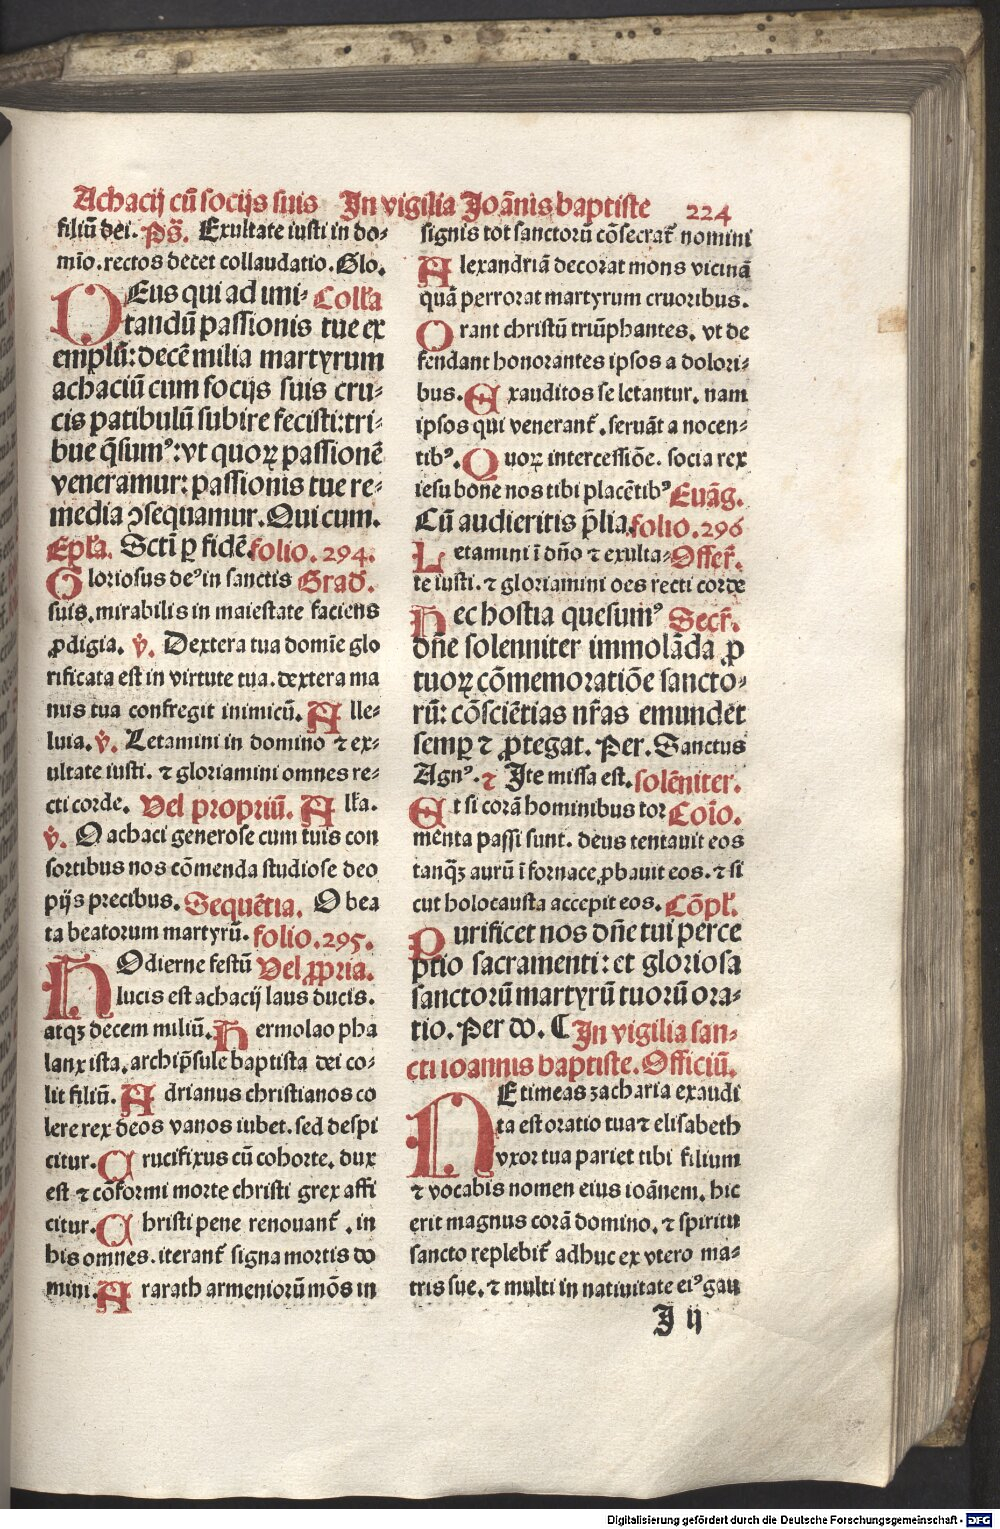 Achacij cū socijs suis In vigilia Joānis baptiste 224
filiū dei. Ps̄. Exultate iusti in do-
mīo. rectos decet collaudatio. Glo.
DEus qui ad imi- Coll'a
tandū passionis tue ex
emplū: decē milia martyrum
achaciū cum socijs suis cru-
cis patibulū subire fecisti: tri-
bue q̄sumꝰ: vt quoꝝ passionē
veneramur: passionis tue re-
media ꝯsequamur. Qui cum.
Epl'a. Scti ꝑ fidē. folio. 294.
Gloriosus deꝰ in sanctis Grad'.
suis. mirabilis in maiestate faciens
ꝓdigia. ℣. Dextera tua domīe glo
rificata est in virtute tua. dextera ma
nus tua confregit inimicū. Alle-
luia. ℣. Letamini in domino ⁊ ex-
ultate iusti. ⁊ gloriamini omnes re-
cti corde. Vel propriū. All'a.
℣. O achaci generose cum tuis con
sortibus nos cōmenda studiose deo
pijs precibus. Sequētia. O bea
ta beatorum martyrū. folio. 295.
HOdierne festū Vel ꝓpria.
lucis est achacij laus ducis.
atqꝫ decem miliū. Hermolao pha
lanx ista. archip̄sule baptista dei co-
lit filiū. Adrianus christianos co
lere rex deos vanos iubet. sed despi
citur. Crucifixus cū cohorte. dux
est ⁊ cōformi morte christi grex affi
citur. Christi pene renouant̄. in
his omnes. iterant̄ signa mortis do
mini. Ararath armeniorū mōs in
signis tot sanctorū cōsecrat̄ nomini
Alexandriā decorat mons vicinā
quā perrorat martyrum cruoribus.
Orant christū triūphantes. vt de
fendant honorantes ipsos a dolori-
bus. Exauditos se letantur. nam
ipsos qui venerant̄. seruāt a nocen-
tibꝰ. Quoꝝ intercessiōe. socia rex
iesu bone nos tibi placētibꝰ Euāg.
Cū audieritis p̄lia. folio. 296
Letamini ī dño ⁊ exulta- Offer̄.
te iusti. ⁊ gloriamini oēs recti corde
Hec hostia quesumꝰ Secr̄.
dñe solenniter immolāda ꝓ
tuoꝝ cōmemoratiōe sancto-
rū: cōsciētias nr̄as emundet
semꝑ ⁊ ꝓtegat. Per. Sanctus
Agnꝰ. ⁊ Ite missa est. solēniter.
Et si corā hominibus tor Coīo.
menta passi sunt. deus tentauit eos
tanqꝫ aurū ī fornace ꝓbauit eos. ⁊ si
cut holocausta accepit eos. Cōpl'.
Purificet nos dñe tui perce
ptio sacramenti: et gloriosa
sanctorū martyrū tuorū ora-
tio. Per do. ⸿ In vigilia san-
cti ioannis baptiste. Officiū.
NE timeas zacharia exaudi
ta est oratio tua ⁊ elisabeth
vxor tua pariet tibi filium
⁊ vocabis nomen eius ioānem. hic
erit magnus corā domino. ⁊ spiritu
sancto replebit̄ adhuc ex vtero ma-
tris sue. ⁊ multi in natiuitate eiꝰ gau
J ij
Digitalisierung gefördert durch die Deutsche Forschungsgemeinschaft - DFG